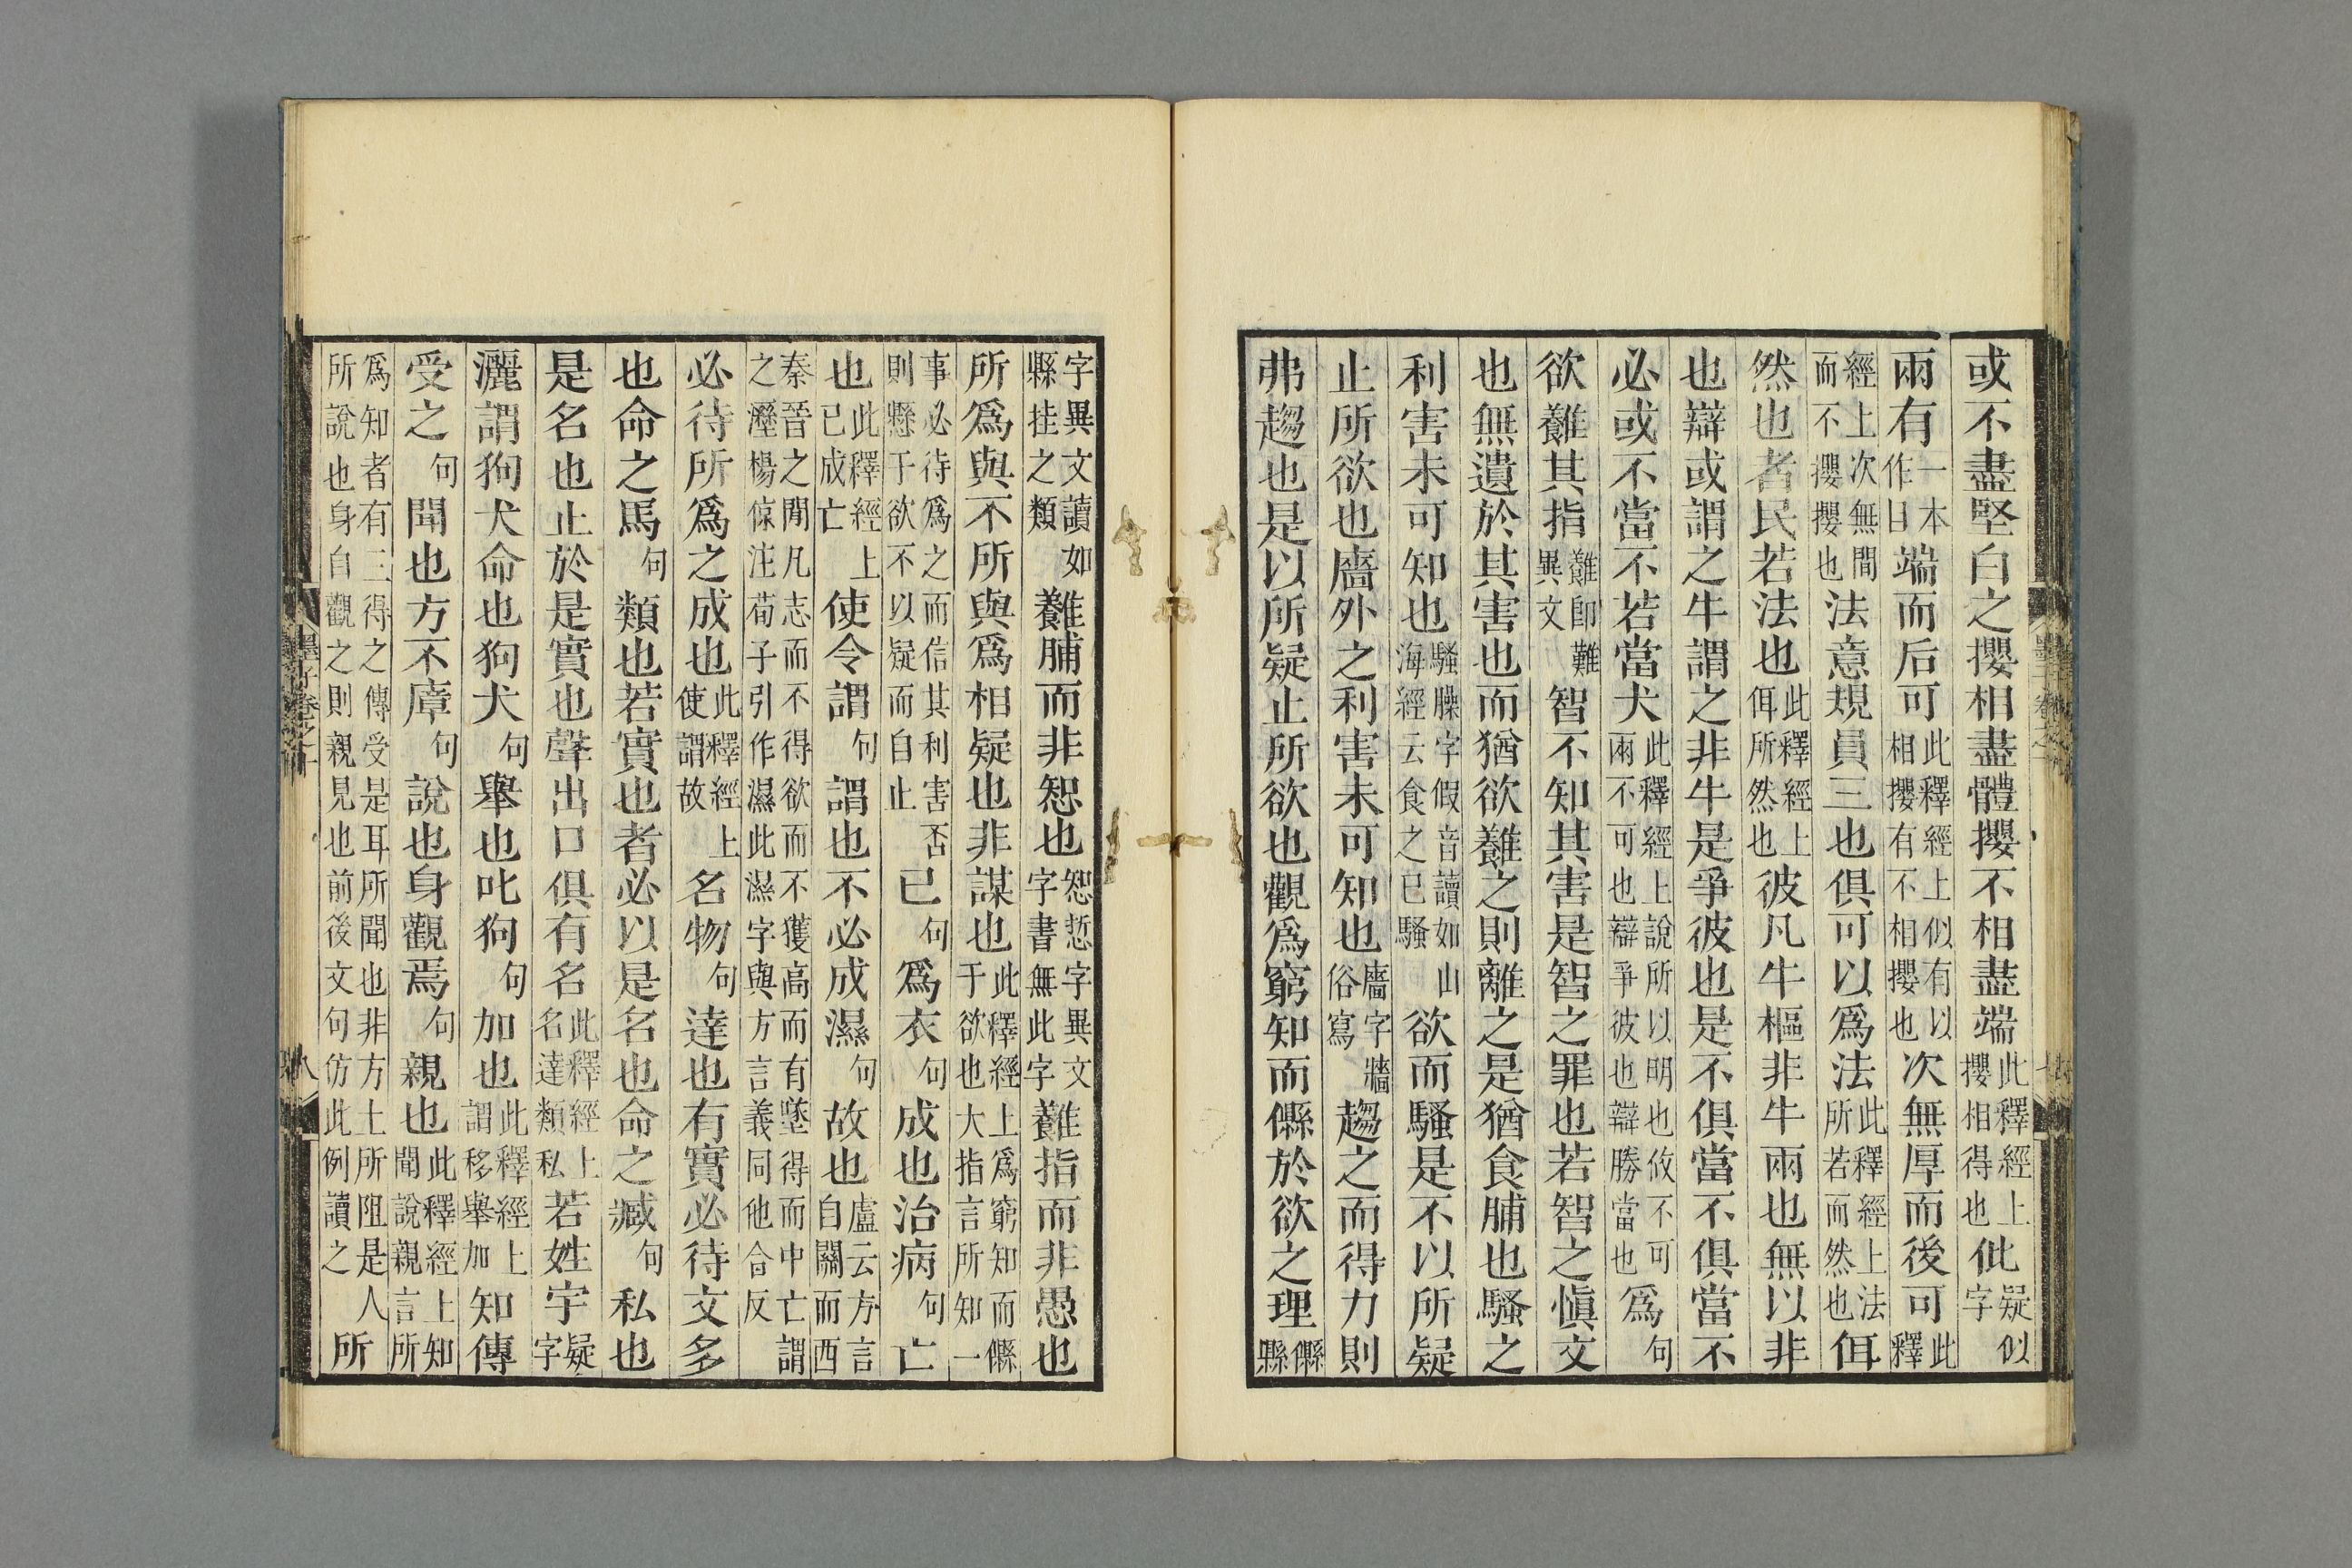 或不盡堅白之攖相盡體攖不相盡端此釋經上攖相得也仳疑似字
兩有一本作目端而后可此釋經上似有以相攖有不相攖也次無厚而後可此釋
經上次無間而不攖攖也法意規員三也俱可以爲法此釋經上法所若而然也佴
然也者民若法也此釋經上佴所然也彼凡牛樞非牛兩也無以非
也辯或謂之牛謂之非牛是爭彼也是不俱當不俱當不
必或不當不若當犬此釋經上說所以明也攸不可兩不可也辯爭彼也辯勝當也爲句
欲䕼其指䕼卽難異文智不知其害是智之罪也若智之愼文
也無遺於其害也而猶欲䕼之則離之是猶食脯也騷之
利害未可知也騷臊字假音讀如山海經云食之已騷欲而騷是不以所疑
止所欲也廧外之利害未可知也廧字牆俗寫趨之而得力則
弗趨也是以所疑止所欲也觀爲窮知而㒽於欲之理㒽縣
字異文讀如縣挂之類䕼脯而非恕也恕惁字異文字書無此字䕼指而非愚也
所爲與不所與爲相疑也非謀也此釋經上爲窮知而㒽于欲也大指言所知一
事必待爲之而信其利害否則懸于欲不以疑而自止已句爲衣句成也治病句亡
也此釋經上已成亡使令謂句謂也不必成濕句故也盧云方言自關而西
秦晉之閒凡志而不得欲而不獲高而有墜得而中亡謂之溼楊倞注荀子引作濕此濕字與方言義同他合反
必待所爲之成也此釋經上使謂故名物句達也有實必待文多
也命之馬句類也若實也者必以是名也命之臧句私也
是名也止於是實也聲出口俱有名此釋經上名達類私若姓宇疑字
灑謂狗犬命也狗犬句舉也叱狗句加也此釋經上謂移舉加知傳
受之句聞也方不㢓句說也身觀焉句親也此釋經上知聞說親言所
爲知者有三得之傳受是耳所聞也非方土所阻是人所說也身自觀之則親見也前後文句仿此例讀之所